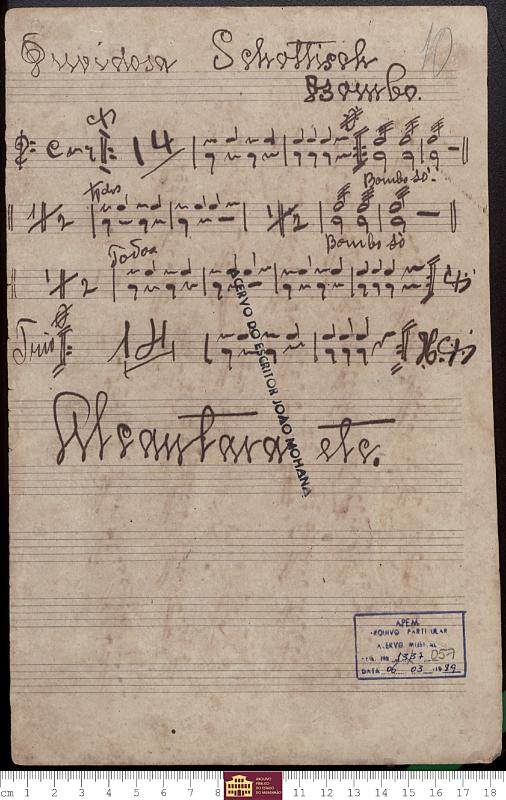 Duvidosa Schottisch 10
Bombo.
14
Bombo só.
1 2 Todos 1 2
Bombo só
Todos
1 2
Trio
Alcantara etc.
ACERVO DO ESCRITOR JOÃO MOHANA
APEM
ARQUIVO PARTICULAR
ACERVO MUSICAL
057
DATA 06 03 1989
cm 1 2 3 4 5 6 7 8 ARQUIVO PÚBLICO DO ESTADO DO MARANHÃO 11 12 13 14 15 16 17 18